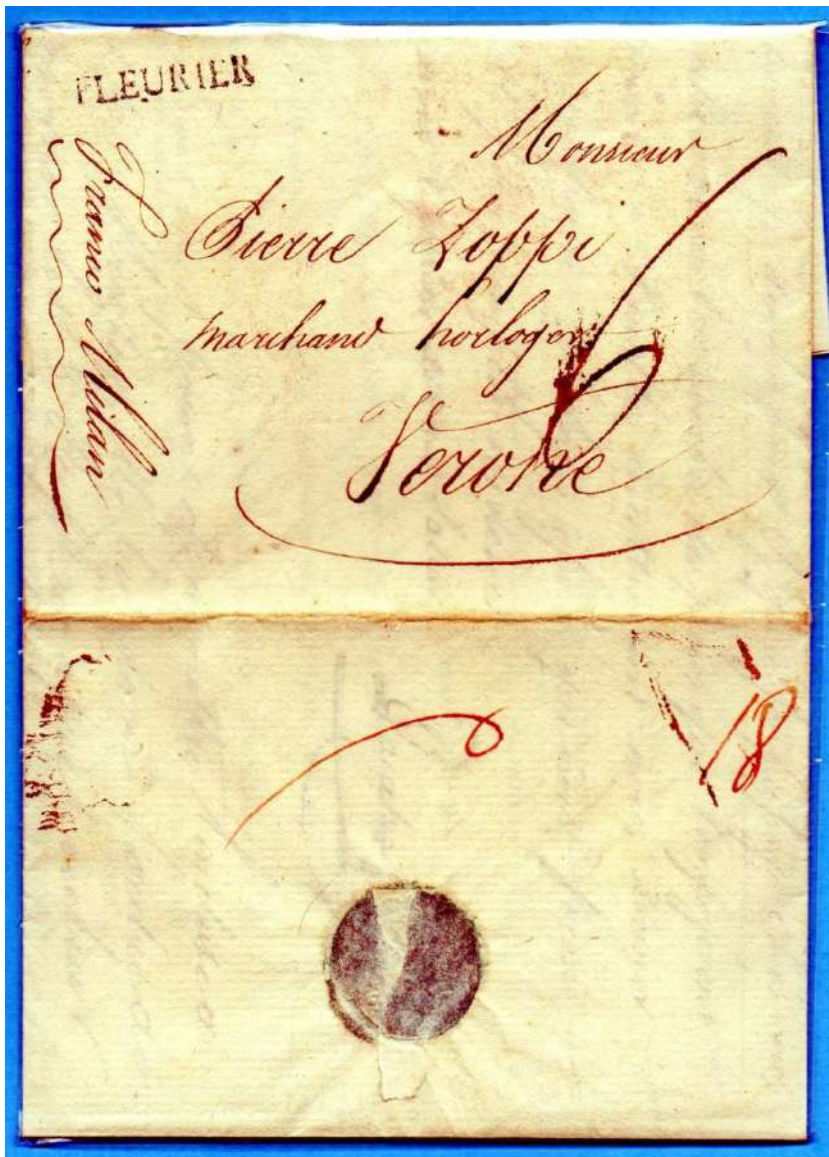 FLEURIER
Franco Milan
Monsieur
Pierre Zoppi
marchand horloger
Verone
6
18